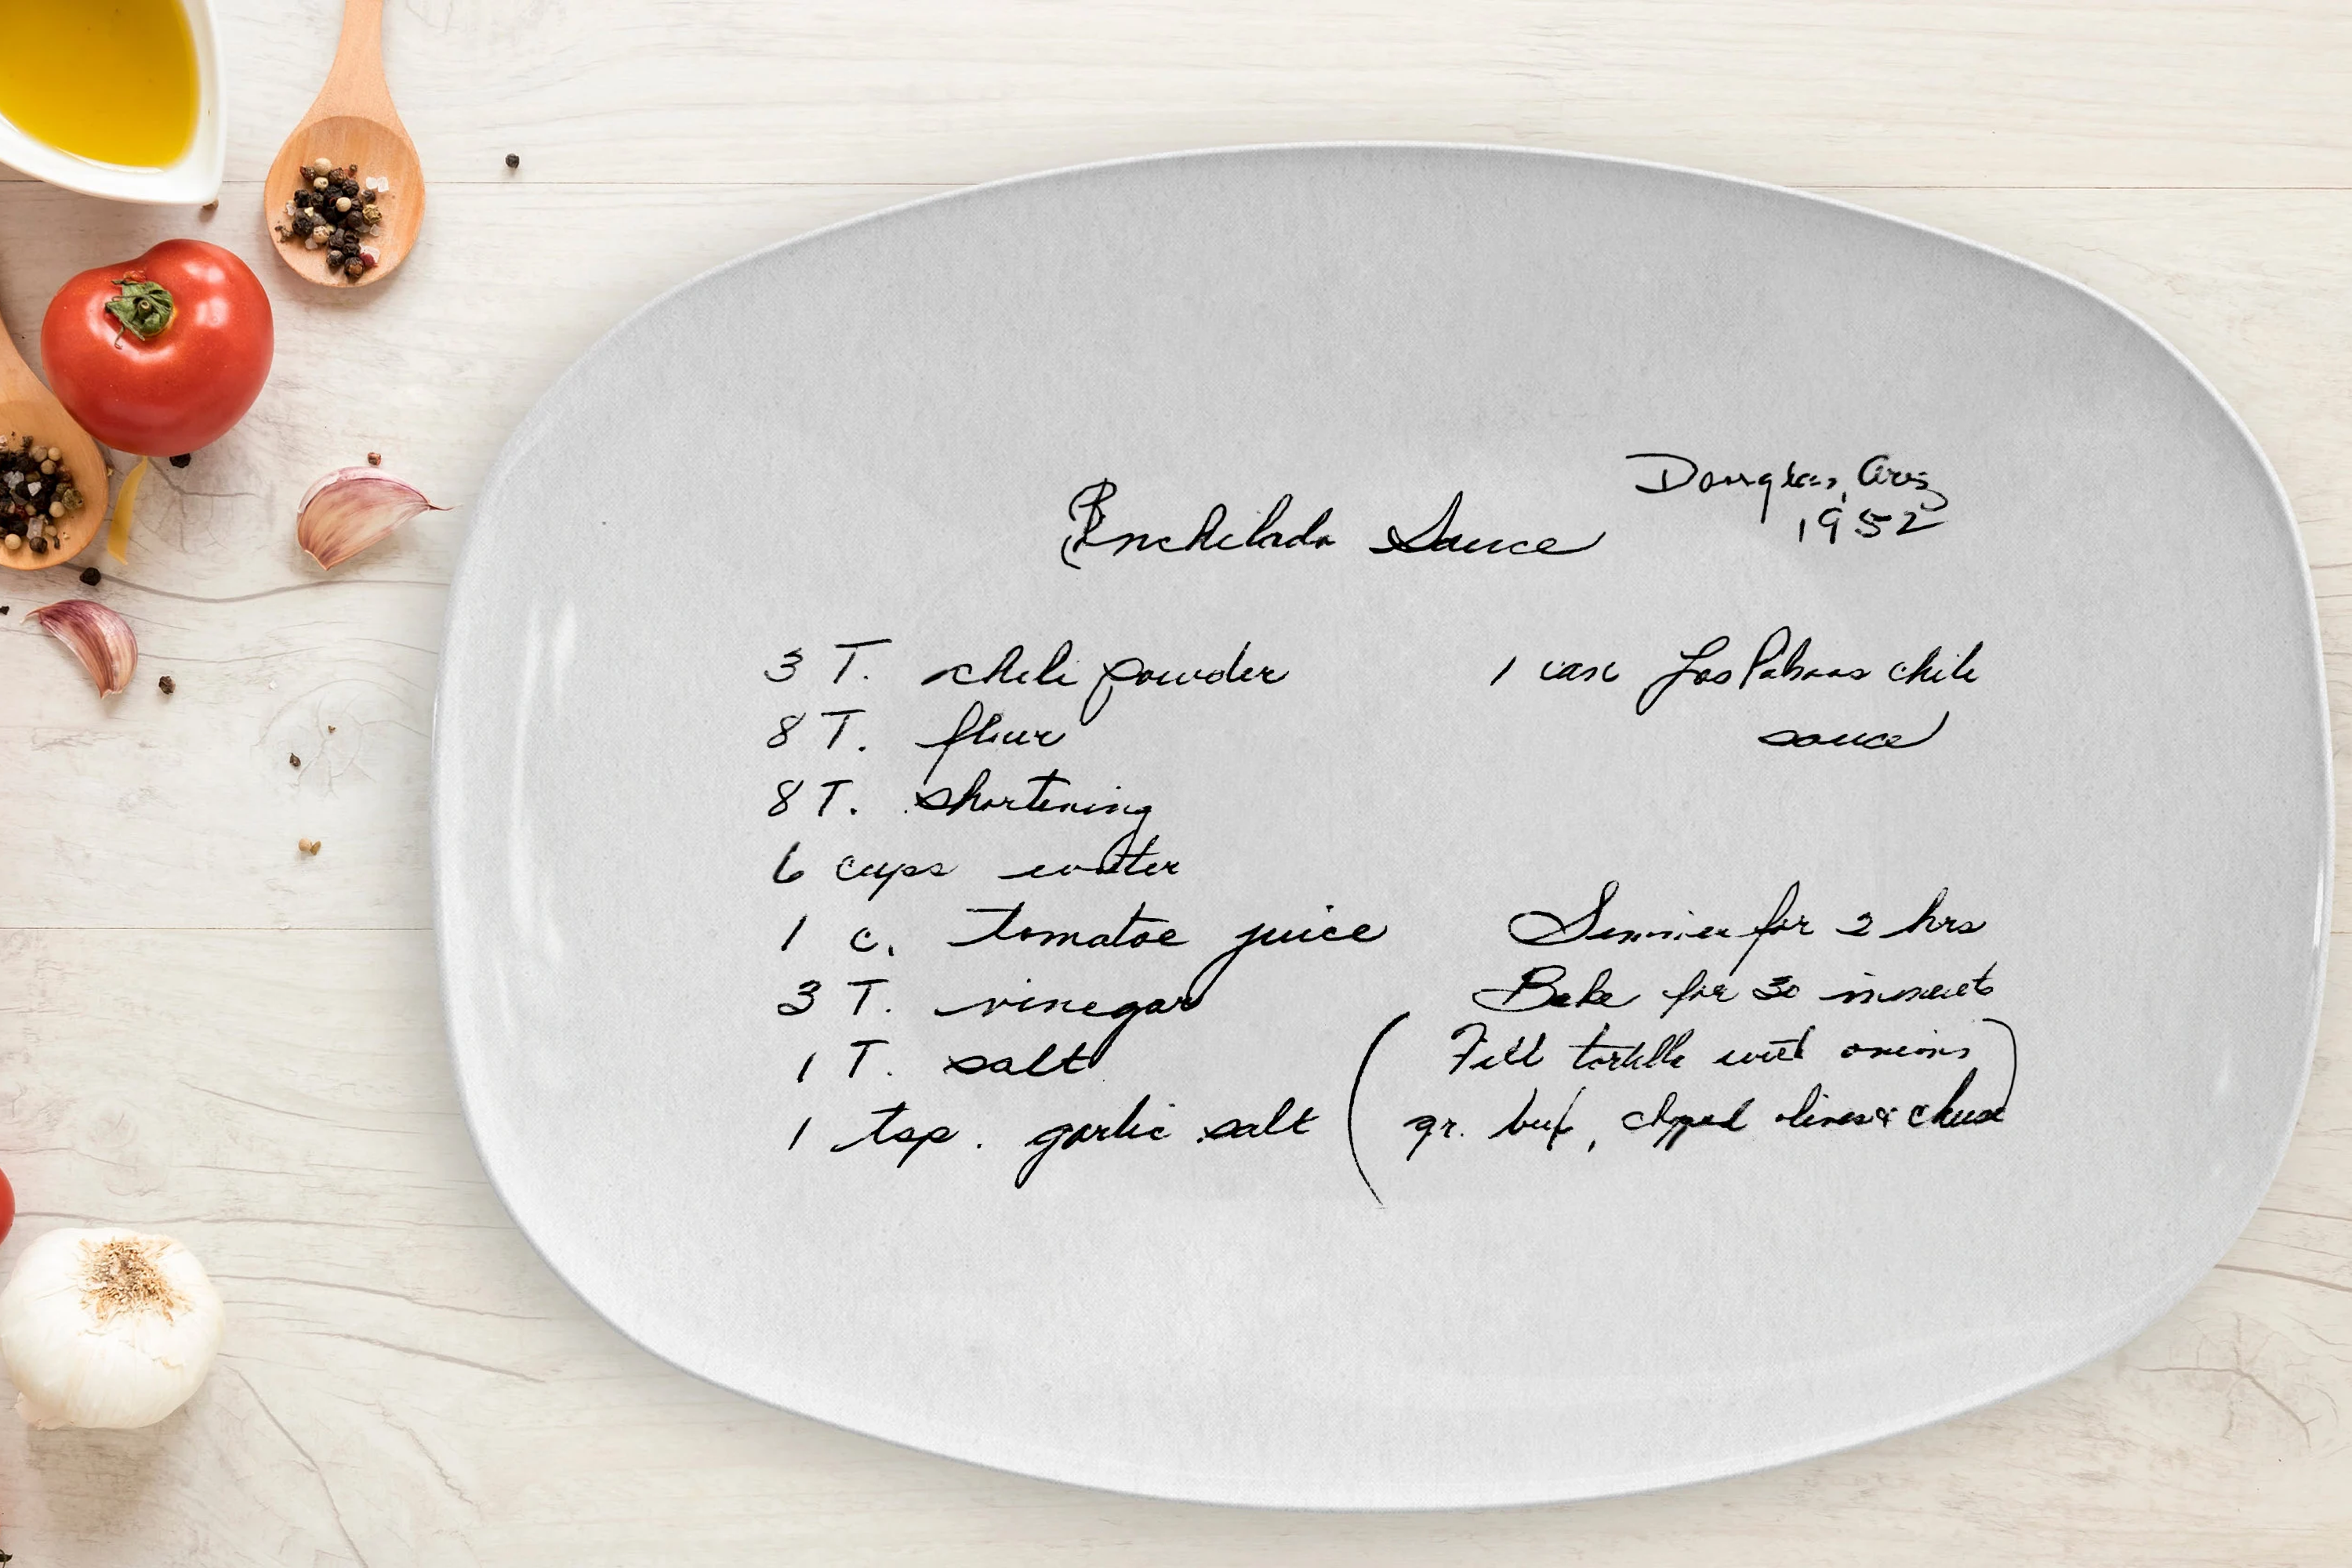 Enchilada Sauce
Douglas, Ariz
1952
3 T. chili powder
8 T. flour
8 T. shortening
6 cups water
1 c. tomatoe juice
3 T. vinegar
1 T. salt
1 tsp. garlic salt
1 can Las Palmas chile
sauce
Simmer for 2 hrs
Bake for 30 minuets
(Fill tortilla with onions
gr. beef, chpped olives & cheese)